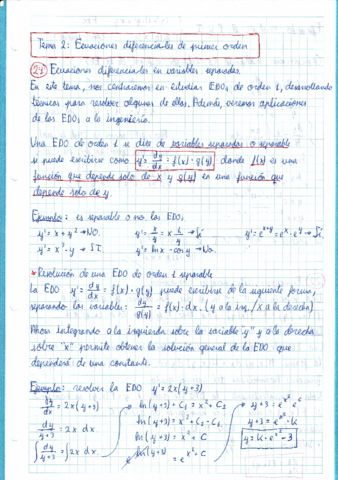 Tema 2: Ecuaciones diferenciales de primer orden
2.1 Ecuaciones diferenciales en variables separadas.
En este tema, nos centraremos en estudiar EDOs de orden 1, desarrollando
técnicas para resolver algunas de ellas. Además, veremos aplicaciones
de las EDOs a la ingeniería.
Una EDO de orden 1 se dice de variables separadas o separable
si puede escribirse como y' = dy/dx = f(x)·g(y) donde f(x) es una
función que depende solo de x y g(y) es una función que
depende solo de y.
Ejemplo: es separable o no las EDOs
y' = x + y² → NO. y' = x/y = x·1/y → Si y' = e^(x+y) = e^x·e^y → Si.
y' = x³·y → SI. y' = ln x - cos y → No.
* Resolución de una EDO de orden 1 separable
La EDO y' = dy/dx = f(x)·g(y) puede escribirse de la siguiente forma,
separando las variables: dy/g(y) = f(x)·dx. (y a la izq./x a la derecha)
Ahora integrando a la izquierda sobre la variable "y" y a la derecha
sobre "x" permite obtener la solución general de la EDO que
dependerá de una constante.
Ejemplo: resolver la EDO y' = 2x(y+3)
dy/dx = 2x(y+3)
dy/y+3 = 2x dx
∫ dy/y+3 = ∫ 2x dx
ln(y+3) + C₁ = x² + C₂
ln(y+3) = x² + C₂ - C₁
ln(y+3) = x² + C
e^ln(y+3) = e^(x²+C)
y+3 = e^x²·e^C
y+3 = e^x²·K
y = K·e^x² - 3